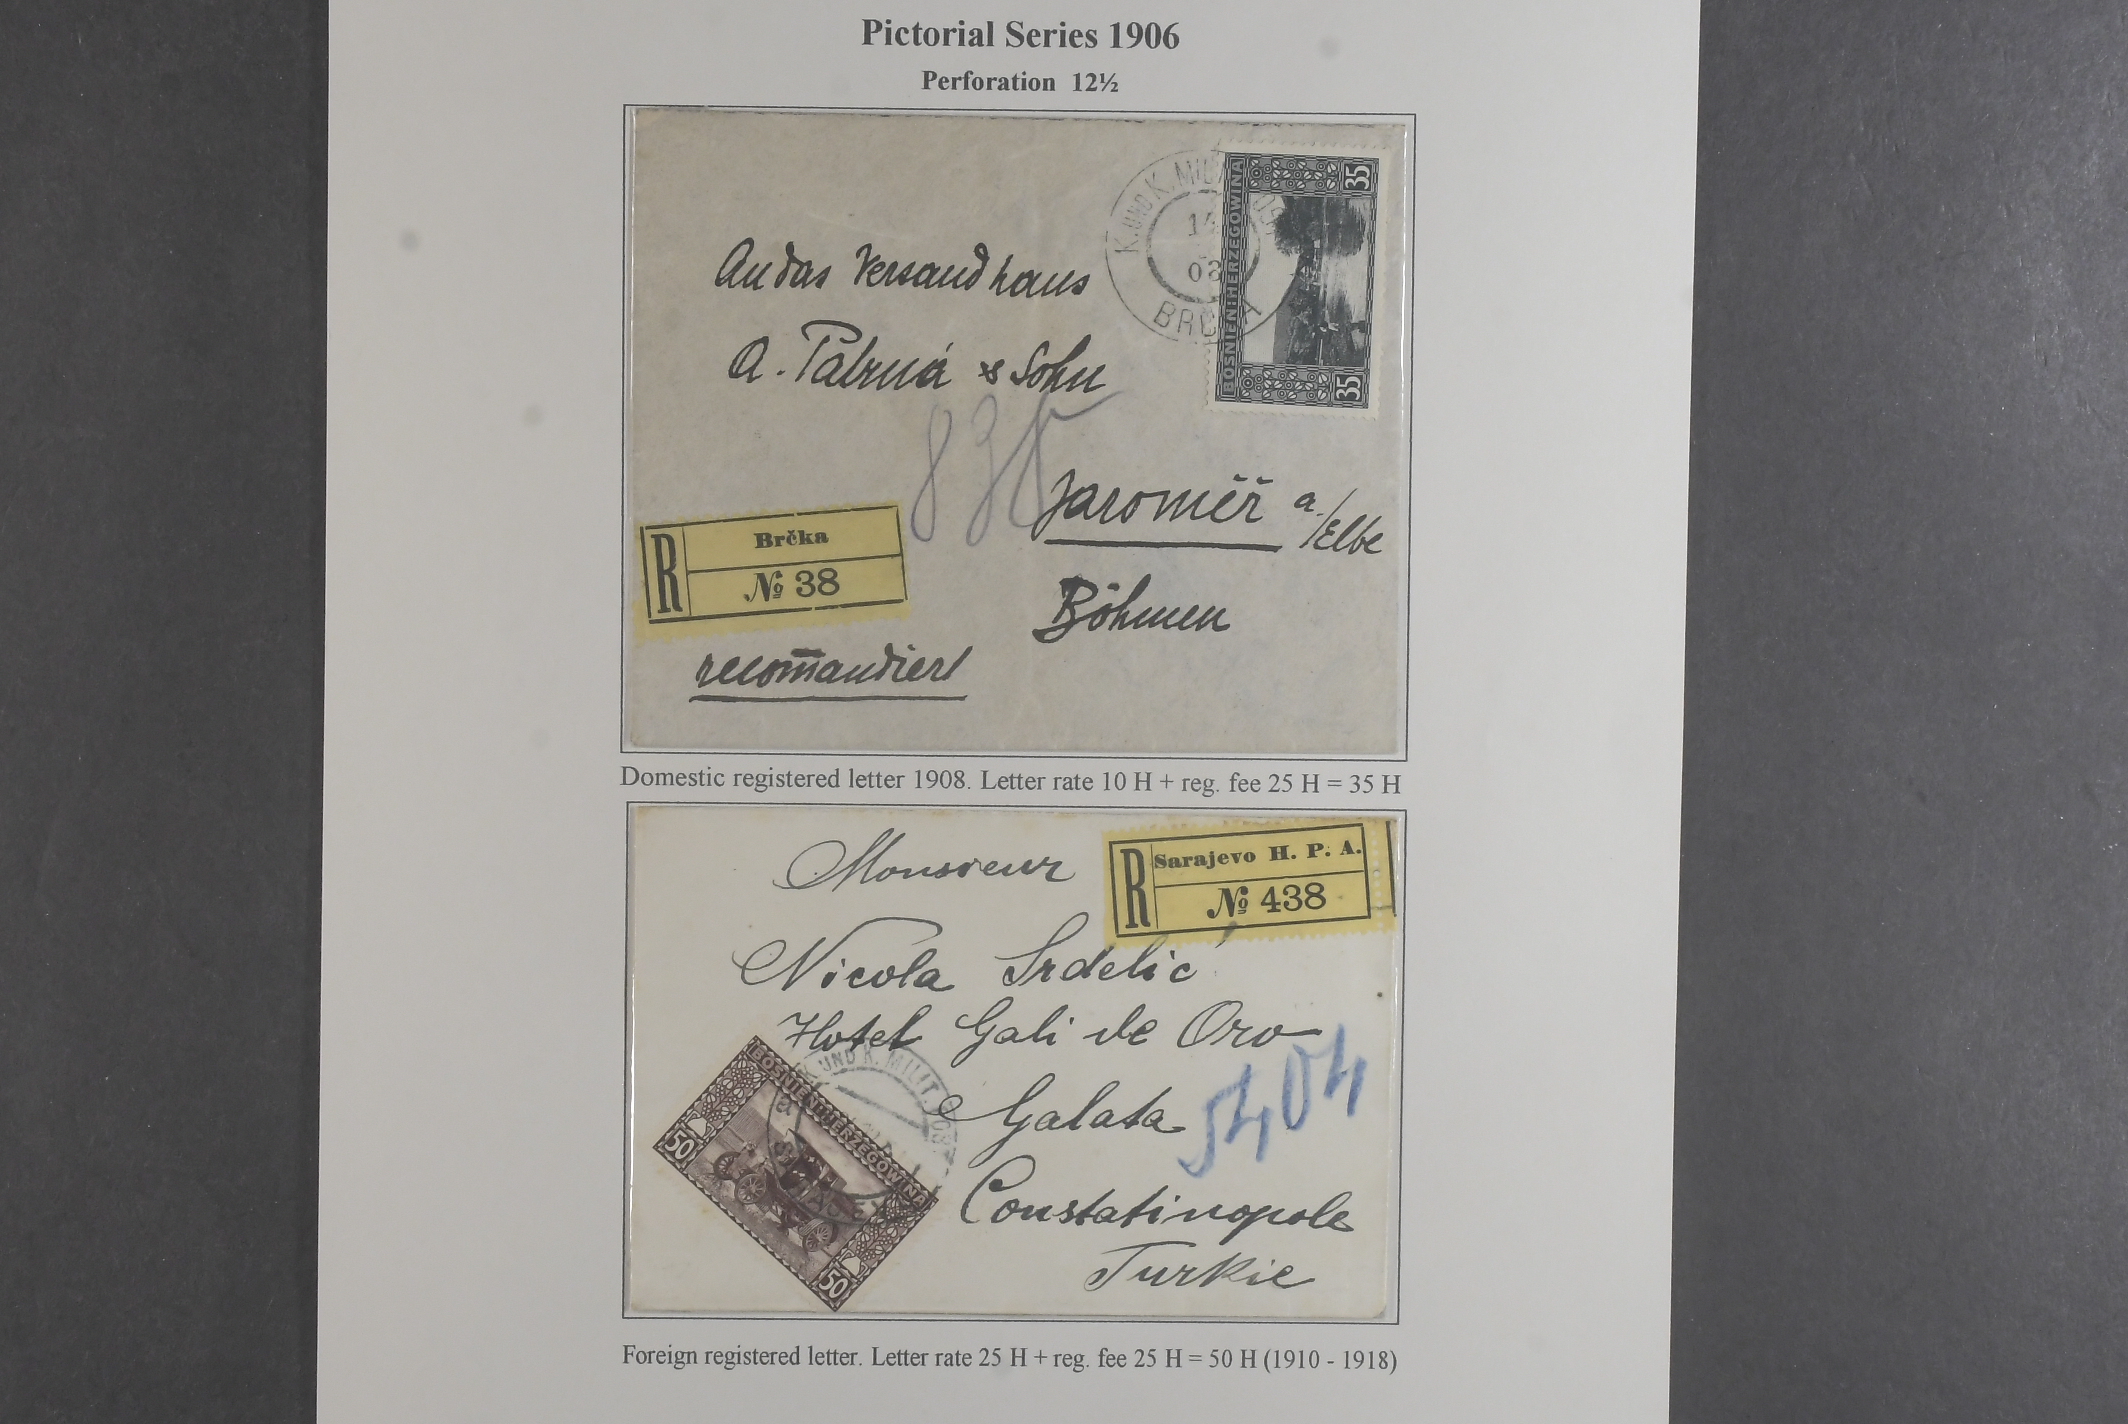 Pictorial Series 1906
Perforation 12½
K. UND K. MILIT. POST
BRČKA
35
BOSNIEN HERZEGOWINA
35
An das Versandhaus
A. Palrná & Sohn
Jaroměř a./Elbe
Böhmen
R
Brčka
№ 38
recom̄andiert
Domestic registered letter 1908. Letter rate 10 H + reg. fee 25 H = 35 H
R
Sarajevo H. P. A.
№ 438
Monsieur
Nicola Srdelić
Hotel Gali de Oro
Galata
5404
Constatinopole
Turkie
K. UND K. MILIT. POST
BOSNIEN HERZEGOWINA
50
50
Foreign registered letter. Letter rate 25 H + reg. fee 25 H = 50 H (1910 - 1918)